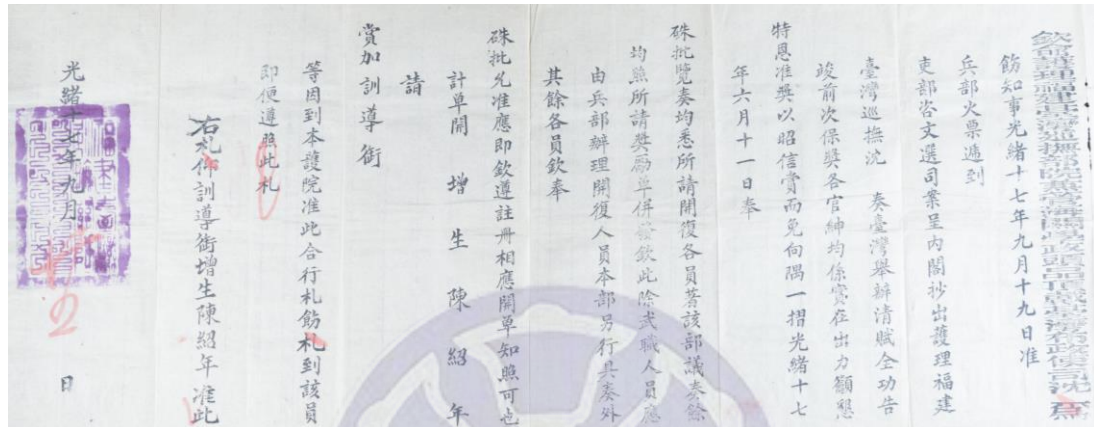 欽命護理福建臺灣巡撫部院兼管海關學政頭品頂戴臺灣布政使司沈 為
飭知事光緒十七年九月十九日准
兵部火票遞到
吏部咨文選司案呈內閣抄出護理福建
臺灣巡撫沈 奏臺灣舉辦清賦全功告
竣前次保獎各官紳均係實在出力籲懇
特恩准獎以昭信賞而免向隅一摺光緒十七
年六月十一日奉
硃批覽奏均悉所請開復各員著該部議奏餘
均照所請獎勵單併發欽此除武職人員應
由兵部辦理開復人員本部另行具奏外
其餘各員欽奉
硃批允准應即欽遵註冊相應開單知照可也
計單開 增生陳紹年
請
賞加訓導銜
等因到本護院准此合行札飭札到該員
即便遵照此札
右札仰訓導銜增生陳紹年准此
光緒十七年九月 日